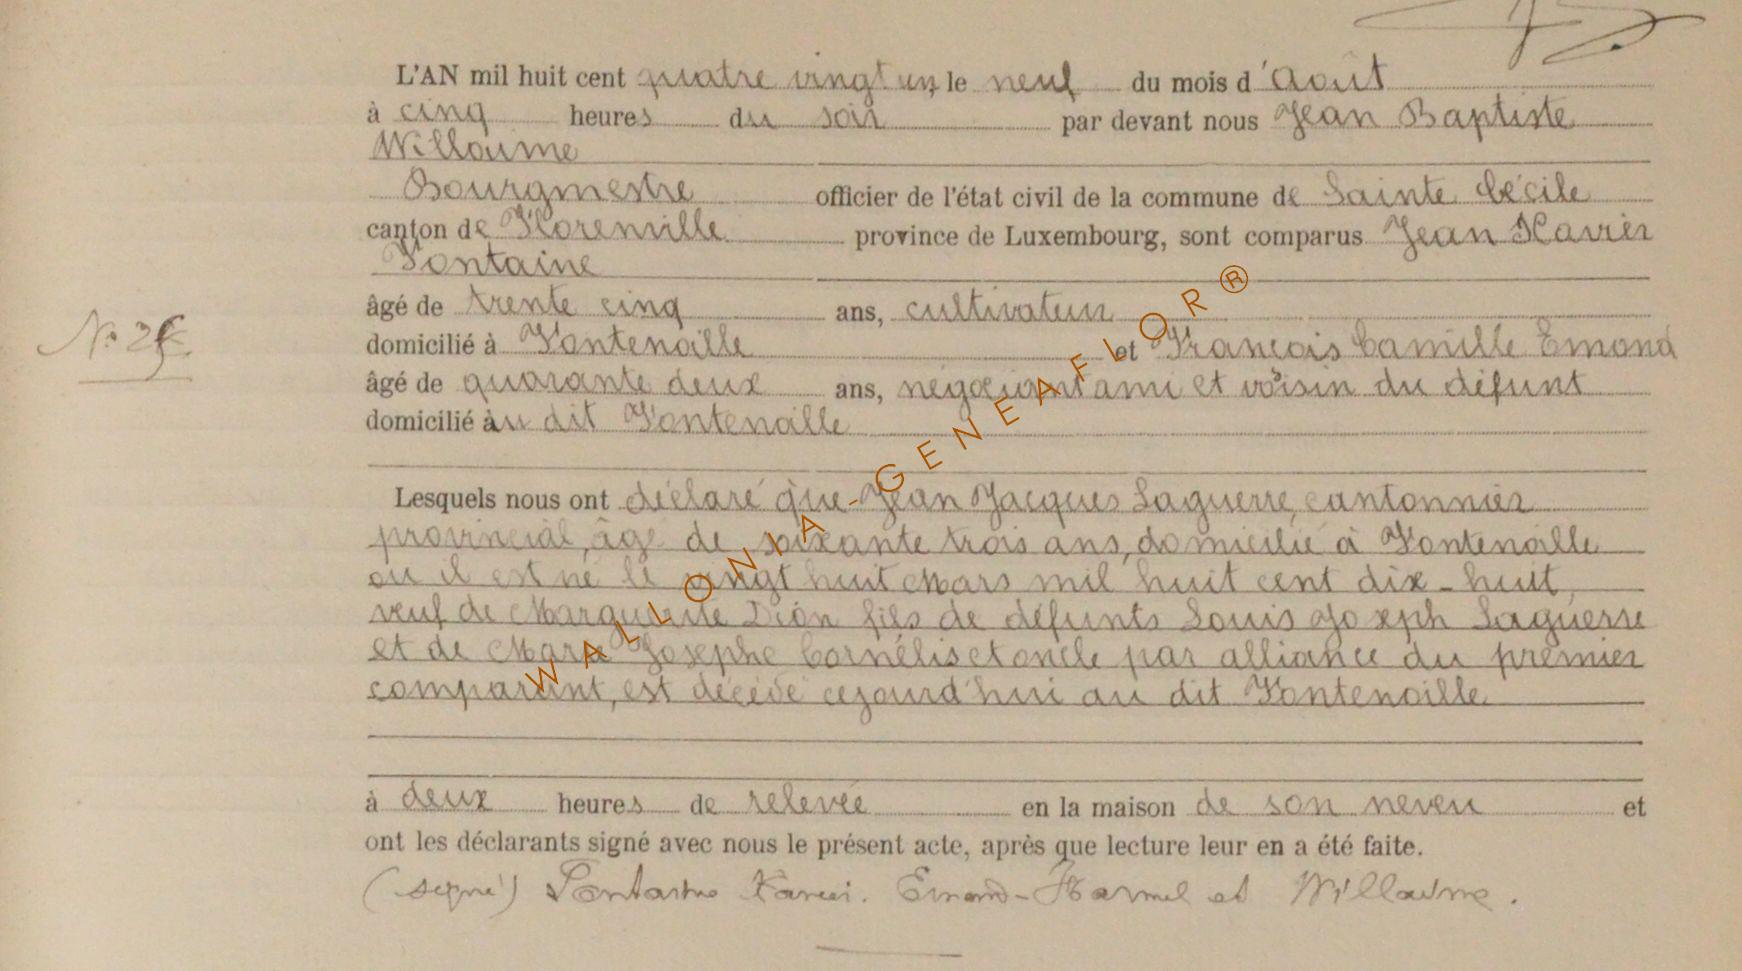 L'AN mil huit cent quatre vingt un, le neuf du mois d'Août
à cinq heures du soir par devant nous Jean Baptiste
Willaume
Bourgmestre officier de l'état civil de la commune de Sainte Cécile
canton de Florenville province de Luxembourg, sont comparus Jean Xavier
Fontaine
âgé de trente cinq ans, cultivateur
domicilié à Fontenoille et François Camille Emond
N° 25
âgé de quarante deux ans, négociant ami et voisin du défunt
domicilié au dit Fontenoille
Lesquels nous ont déclaré que Jean Jacques Laguerre, cantonnier
provincial, âgé de soixante trois ans, domicilié à Fontenoille
ou il est né le vingt huit Mars mil huit cent dix-huit,
veuf de Marguerite Dion fils de défunts Louis Joseph Laguerre
et de Marie Josephe Cornélis et oncle par alliance du premier
comparant, est décédé cejourd'hui au dit Fontenoille
à deux heures de relevée en la maison de son neveu et
ont les déclarants signé avec nous le présent acte, après que lecture leur en a été faite.
(signé) Fontaine Xavier. Emond-Hamel et Willaume.
WALLONIA-GENEAFLOR®